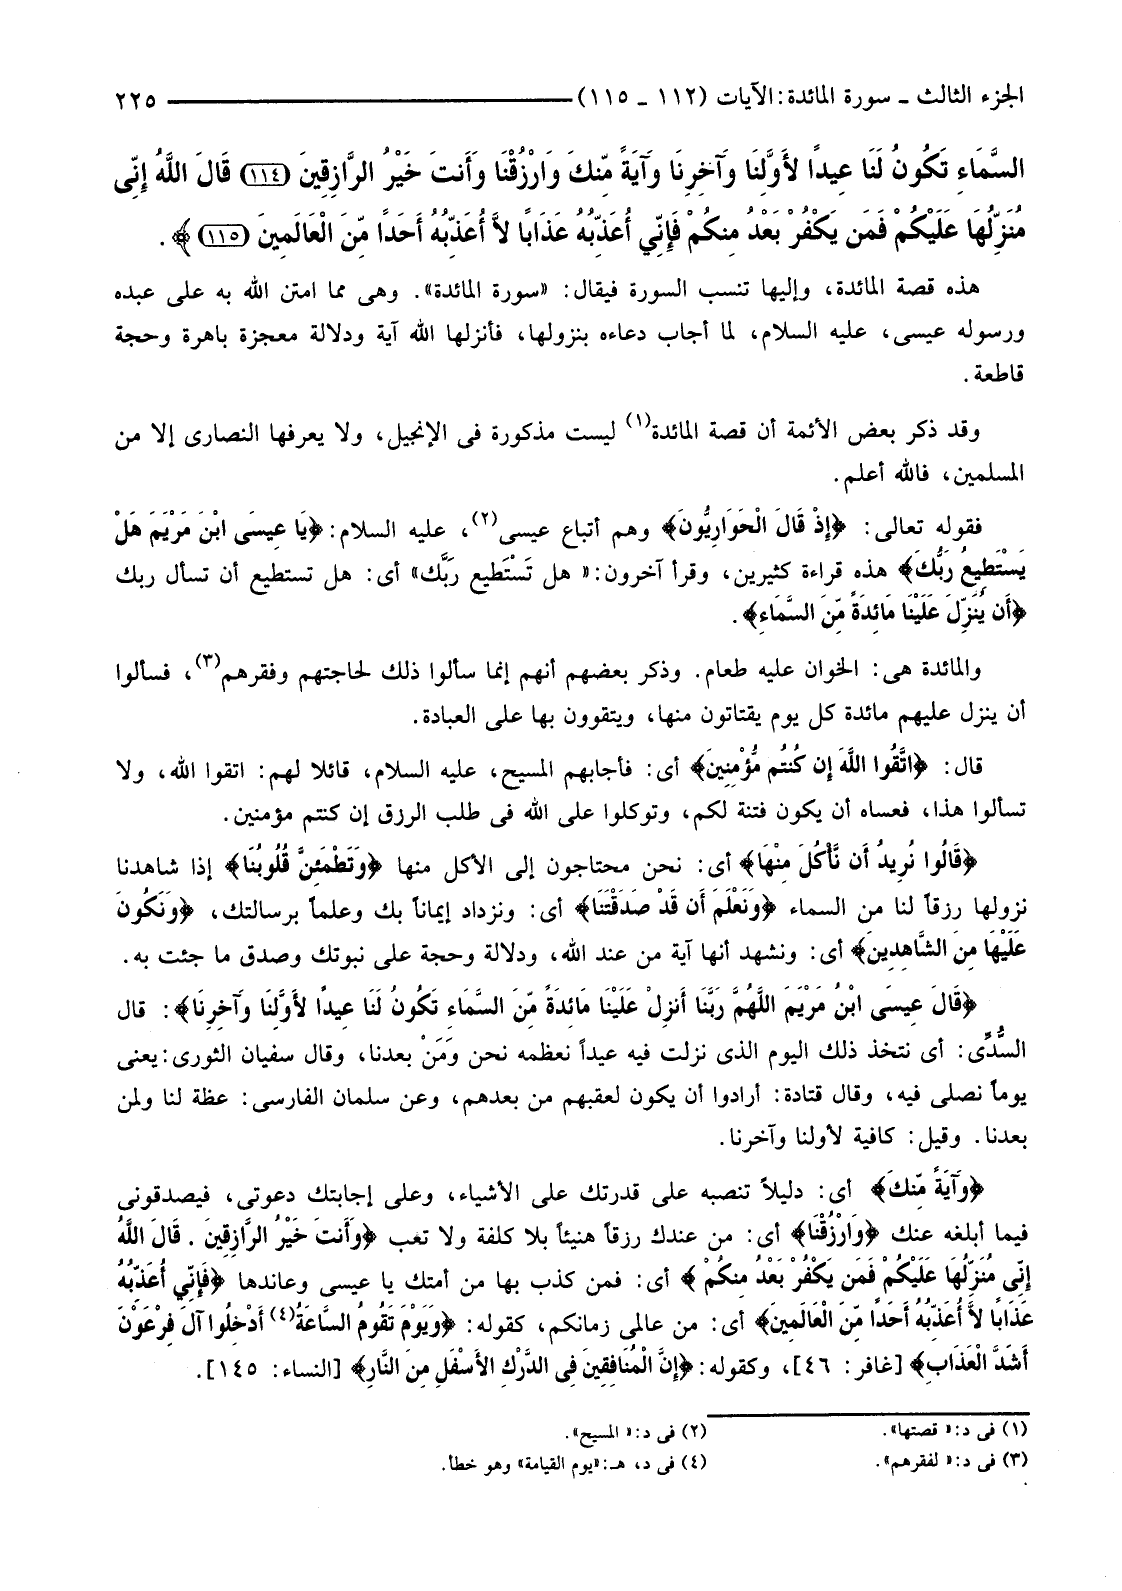 الجزء الثالث ـ سورة المائدة: الآيات (١١٢ ـ ١١٥) ٢٢٥
السَّمَاءِ تَكُونُ لَنَا عِيداً لأَوَّلِنَا وَآخِرِنَا وَآيَةً مِّنكَ وَارْزُقْنَا وَأَنتَ خَيْرُ الرَّازِقِينَ (١١٤) قَالَ اللَّهُ إِنِّي
مُنَزِّلُهَا عَلَيْكُمْ فَمَن يَكْفُرْ بَعْدُ مِنكُمْ فَإِنِّي أُعَذِّبُهُ عَذَابًا لاَّ أُعَذِّبُهُ أَحَدًا مِّنَ الْعَالَمِينَ (١١٥) ﴾ .
هذه قصة المائدة، وإليها تنسب السورة فيقال: «سورة المائدة». وهى مما امتن الله به على عبده
ورسوله عيسى، عليه السلام، لما أجاب دعاءه بنزولها، فأنزلها الله آية ودلالة معجزة باهرة وحجة
قاطعة .
وقد ذكر بعض الأئمة أن قصة المائدة(١) ليست مذكورة فى الإنجيل، ولا يعرفها النصارى إلا من
المسلمين، فالله أعلم.
فقوله تعالى: ﴿إِذْ قَالَ الْحَوَارِيُّونَ﴾ وهم أتباع عيسى(٢)، عليه السلام: ﴿يَا عِيسَى ابْنَ مَرْيَمَ هَلْ
يَسْتَطِيعُ رَبُّكَ﴾ هذه قراءة كثيرين، وقرأ آخرون: « هل تَسْتَطيع رَبَّك» أى: هل تستطيع أن تسأل ربك
﴿أَن يُنَزِّلَ عَلَيْنَا مَائِدَةً مِّنَ السَّمَاءِ﴾.
والمائدة هى: الخوان عليه طعام. وذكر بعضهم أنهم إنما سألوا ذلك لحاجتهم وفقرهم(٣)، فسألوا
أن ينزل عليهم مائدة كل يوم يقتاتون منها، ويتقوون بها على العبادة.
قال: ﴿اتَّقُوا اللَّهَ إِن كُنتُم مُّؤْمِنِينَ﴾ أى: فأجابهم المسيح، عليه السلام، قائلا لهم: اتقوا الله، ولا
تسألوا هذا، فعساه أن يكون فتنة لكم، وتوكلوا على الله فى طلب الرزق إن كنتم مؤمنين.
﴿قَالُوا نُرِيدُ أَن نَّأْكُلَ مِنْهَا﴾ أى: نحن محتاجون إلى الأكل منها ﴿وَتَطْمَئِنَّ قُلُوبُنَا﴾ إذا شاهدنا
نزولها رزقاً لنا من السماء ﴿وَنَعْلَمَ أَن قَدْ صَدَقْتَنَا﴾ أى: ونزداد إيماناً بك وعلماً برسالتك، ﴿وَنَكُونَ
عَلَيْهَا مِنَ الشَّاهِدِينَ﴾ أى: ونشهد أنها آية من عند الله، ودلالة وحجة على نبوتك وصدق ما جئت به.
﴿قَالَ عِيسَى ابْنُ مَرْيَمَ اللَّهُمَّ رَبَّنَا أَنزِلْ عَلَيْنَا مَائِدَةً مِّنَ السَّمَاءِ تَكُونُ لَنَا عِيدًا لأَوَّلِنَا وَآخِرِنَا﴾: قال
السُّدِّى: أى نتخذ ذلك اليوم الذى نزلت فيه عيداً نعظمه نحن وَمَنْ بعدنا، وقال سفيان الثورى: يعنى
يوماً نصلى فيه، وقال قتادة: أرادوا أن يكون لعقبهم من بعدهم، وعن سلمان الفارسى: عظة لنا ولمن
بعدنا. وقيل: كافية لأولنا وآخرنا.
﴿وَآيَةً مِّنكَ﴾ أى: دليلاً تنصبه على قدرتك على الأشياء، وعلى إجابتك دعوتى، فيصدقونى
فيما أبلغه عنك ﴿وَارْزُقْنَا﴾ أى: من عندك رزقاً هنيئاً بلا كلفة ولا تعب ﴿وَأَنتَ خَيْرُ الرَّازِقِينَ . قَالَ اللَّهُ
إِنِّي مُنَزِّلُهَا عَلَيْكُمْ فَمَن يَكْفُرْ بَعْدُ مِنكُمْ ﴾ أى: فمن كذب بها من أمتك يا عيسى وعاندها ﴿فَإِنِّي أُعَذِّبُهُ
عَذَابًا لاَّ أُعَذِّبُهُ أَحَدًا مِّنَ الْعَالَمِينَ﴾ أى: من عالمى زمانكم، كقوله: ﴿وَيَوْمَ تَقُومُ السَّاعَةُ(٤) أَدْخِلُوا آلَ فِرْعَوْنَ
أَشَدَّ الْعَذَابِ﴾ [غافر: ٤٦]، وكقوله: ﴿إِنَّ الْمُنَافِقِينَ فِى الدَّرْكِ الأَسْفَلِ مِنَ النَّارِ﴾ [النساء: ١٤٥].
(١) فى د: « قصتها». (٢) فى د: « المسيح».
(٣) فى د: « لفقرهم». (٤) فى د، هـ: «يوم القيامة» وهو خطأ.